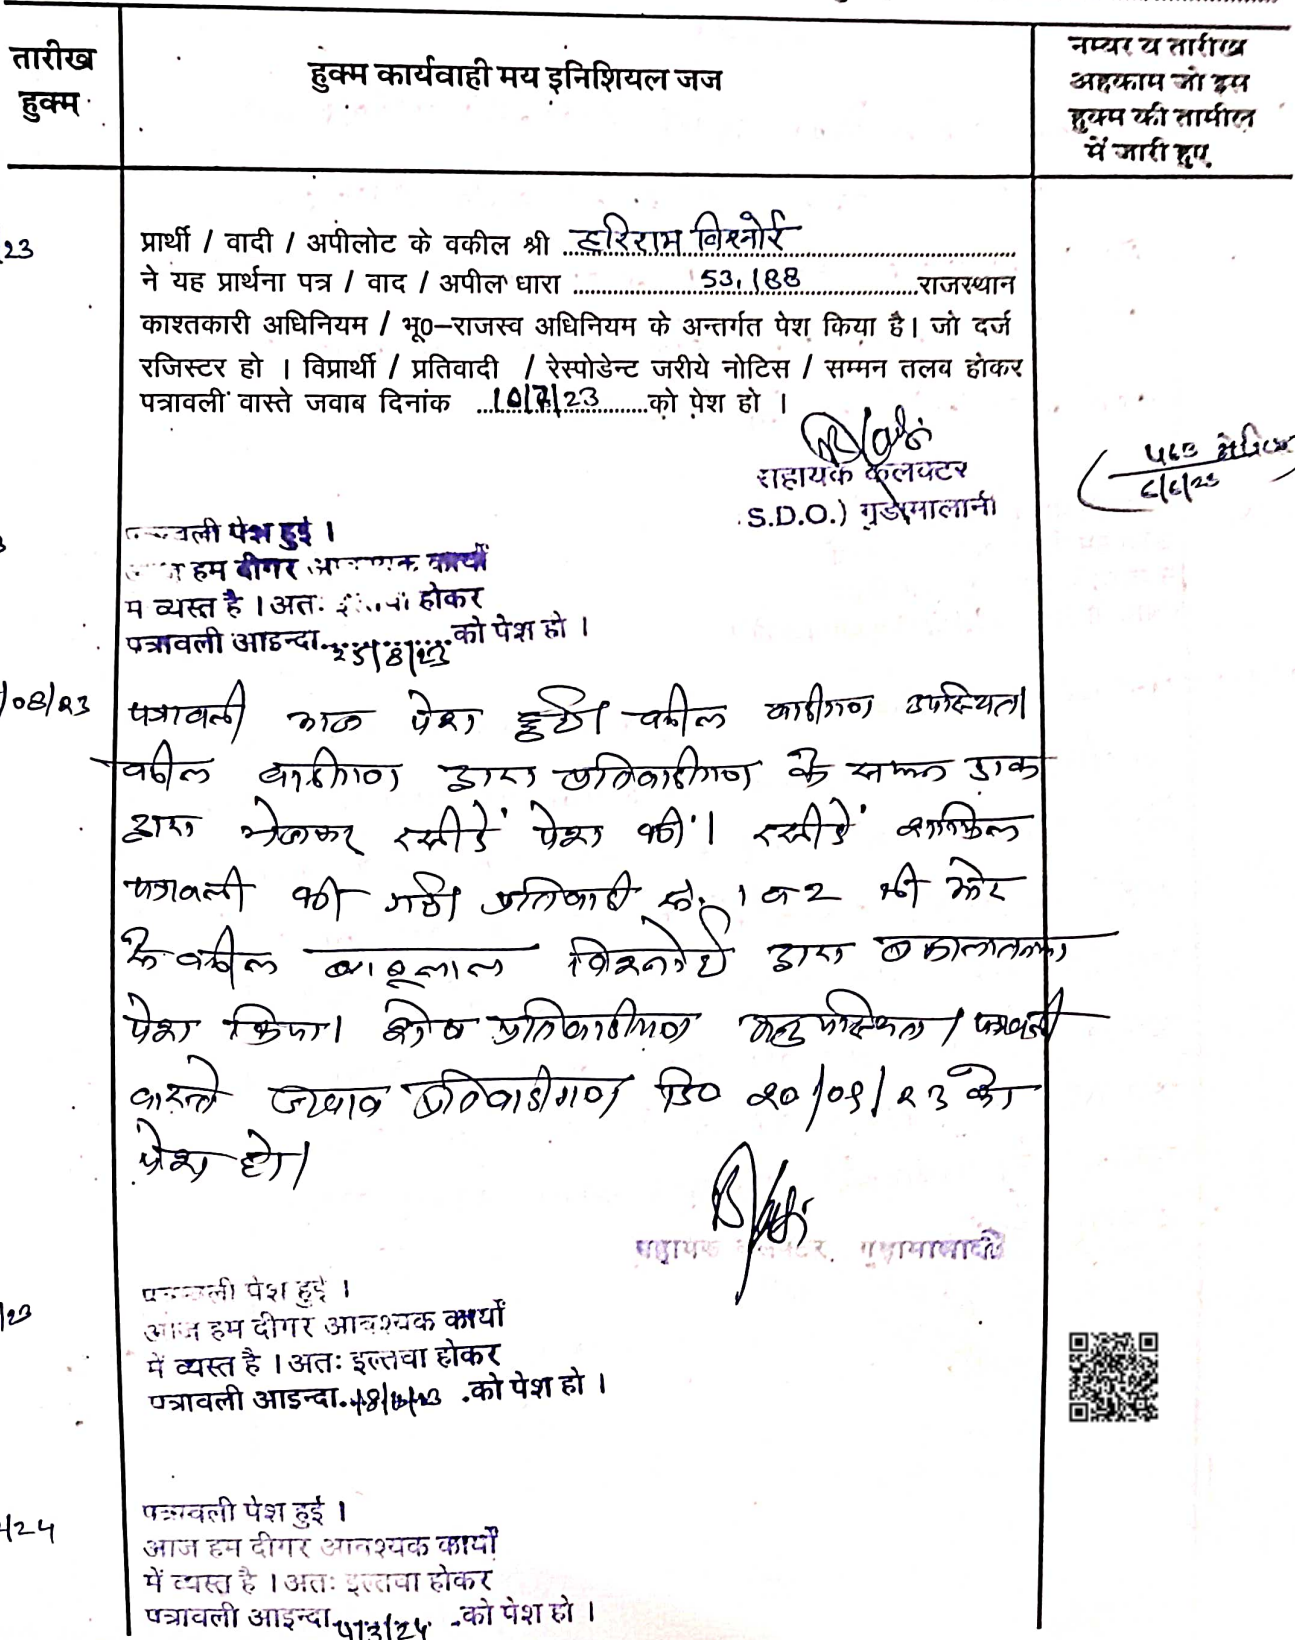 तारीख
हुक्म
हुक्म कार्यवाही मय इनिशियल जज
नम्बर व तारीख
अहकाम जो इस
हुक्म की तामील
में जारी हुए
23
प्रार्थी / वादी / अपीलोट के वकील श्री हरिराम विश्नोई
ने यह प्रार्थना पत्र / वाद / अपील धारा 53,188 राजस्थान
काश्तकारी अधिनियम / भू0-राजस्व अधिनियम के अन्तर्गत पेश किया है। जो दर्ज
रजिस्टर हो । विप्रार्थी / प्रतिवादी / रेस्पोडेन्ट जरीये नोटिस / सम्मन तलब होकर
पत्रावली वास्ते जवाब दिनांक 10/7/23 को पेश हो ।
सहायक कलक्टर
S.D.O.) गुडामालानी
6/6/23
पत्रावली पेश हुई ।
आज हम दीगर आवश्यक कार्यो
में व्यस्त है । अतः होकर
पत्रावली आइन्दा 25/8/23 को पेश हो ।
/08/23
पत्रावली आज पेश हुई। वकील वादीगण उपस्थित।
वकील वादीगण द्वारा प्रतिवादीगण के सम्मन डाक
द्वारा भेजकर रसीदें पेश की। रसीदें शामिल
पत्रावली की गई। प्रतिवादी सं. 1 व 2 की ओर
के वकील बाबूलाल विश्नोई द्वारा वकालतनामा
पेश किया। शेष प्रतिवादीगण अनुपस्थित। पत्रावली
वास्ते जवाब प्रतिवादीगण दि0 20/09/23 को
पेश हो।
सहायक कलक्टर, गुडामालानी
/23
पत्रावली पेश हुई ।
आज हम दीगर आवश्यक कार्यो
में व्यस्त है । अतः इल्तवा होकर
पत्रावली आइन्दा को पेश हो ।
/24
पत्रावली पेश हुई ।
आज हम दीगर आवश्यक कार्यो
में व्यस्त है । अतः इल्तवा होकर
पत्रावली आइन्दा को पेश हो ।